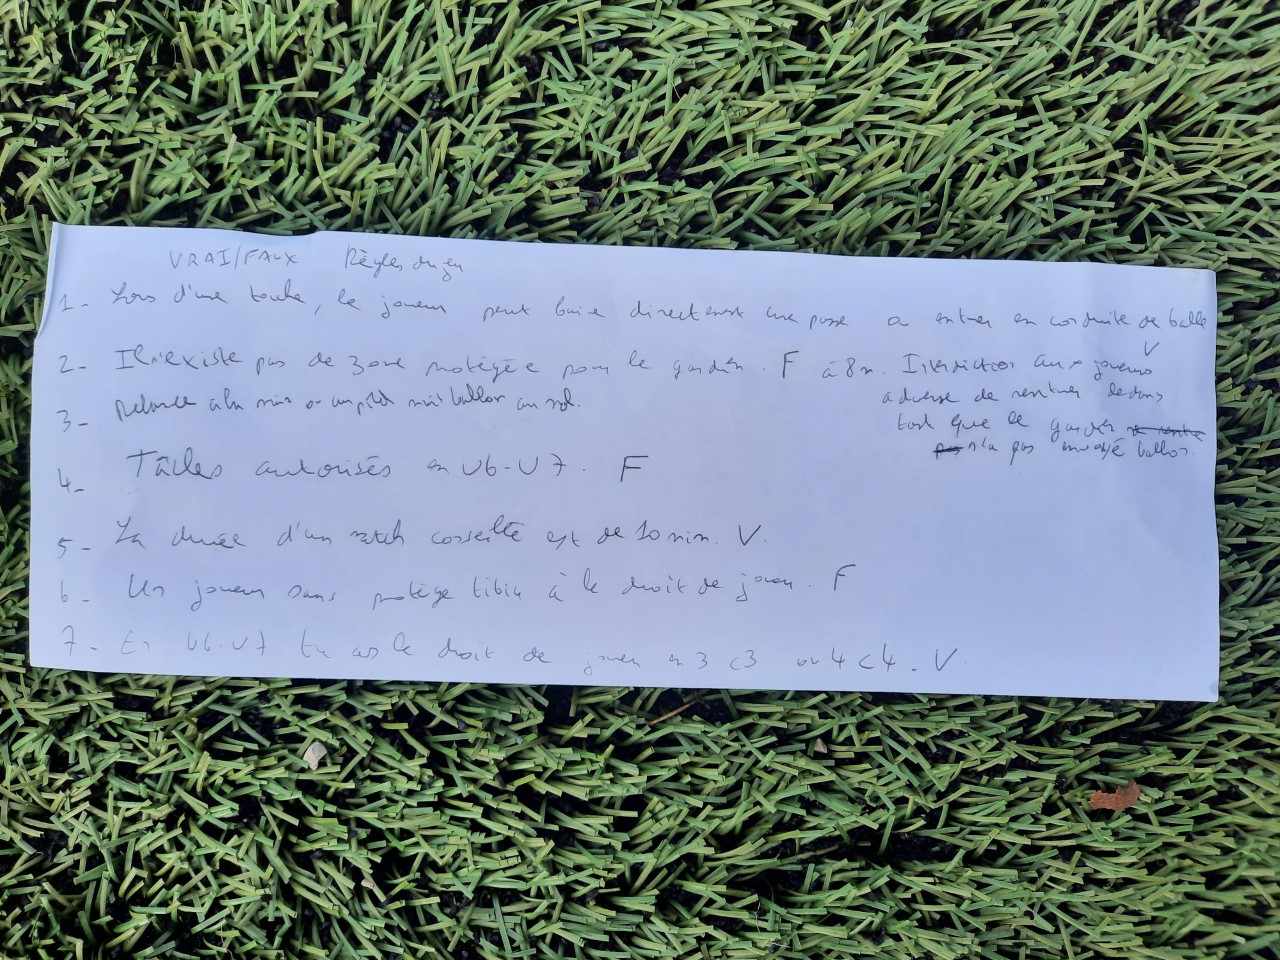 VRAI/FAUX Règles du jeu
1- Lors d'une touche, le joueur peut faire directement une passe ou entrer en conduite de balle
V
2- Il n'existe pas de zone protégée pour le gardien. F à 8m. Interdiction aux joueurs
adverse de rentrer dedans
tant que le gardien
n'a pas envoyé ballon.
3- Relance à la main ou au pied mais ballon au sol.
4- Tâcles autorisés en U6-U7. F
5- La durée d'un match conseillé est de 10 min. V.
6- Un joueur sans protège tibia à le droit de jouer. F
7- En U6-U7 tu as le droit de jouer en 3 c 3 ou 4 c 4. V